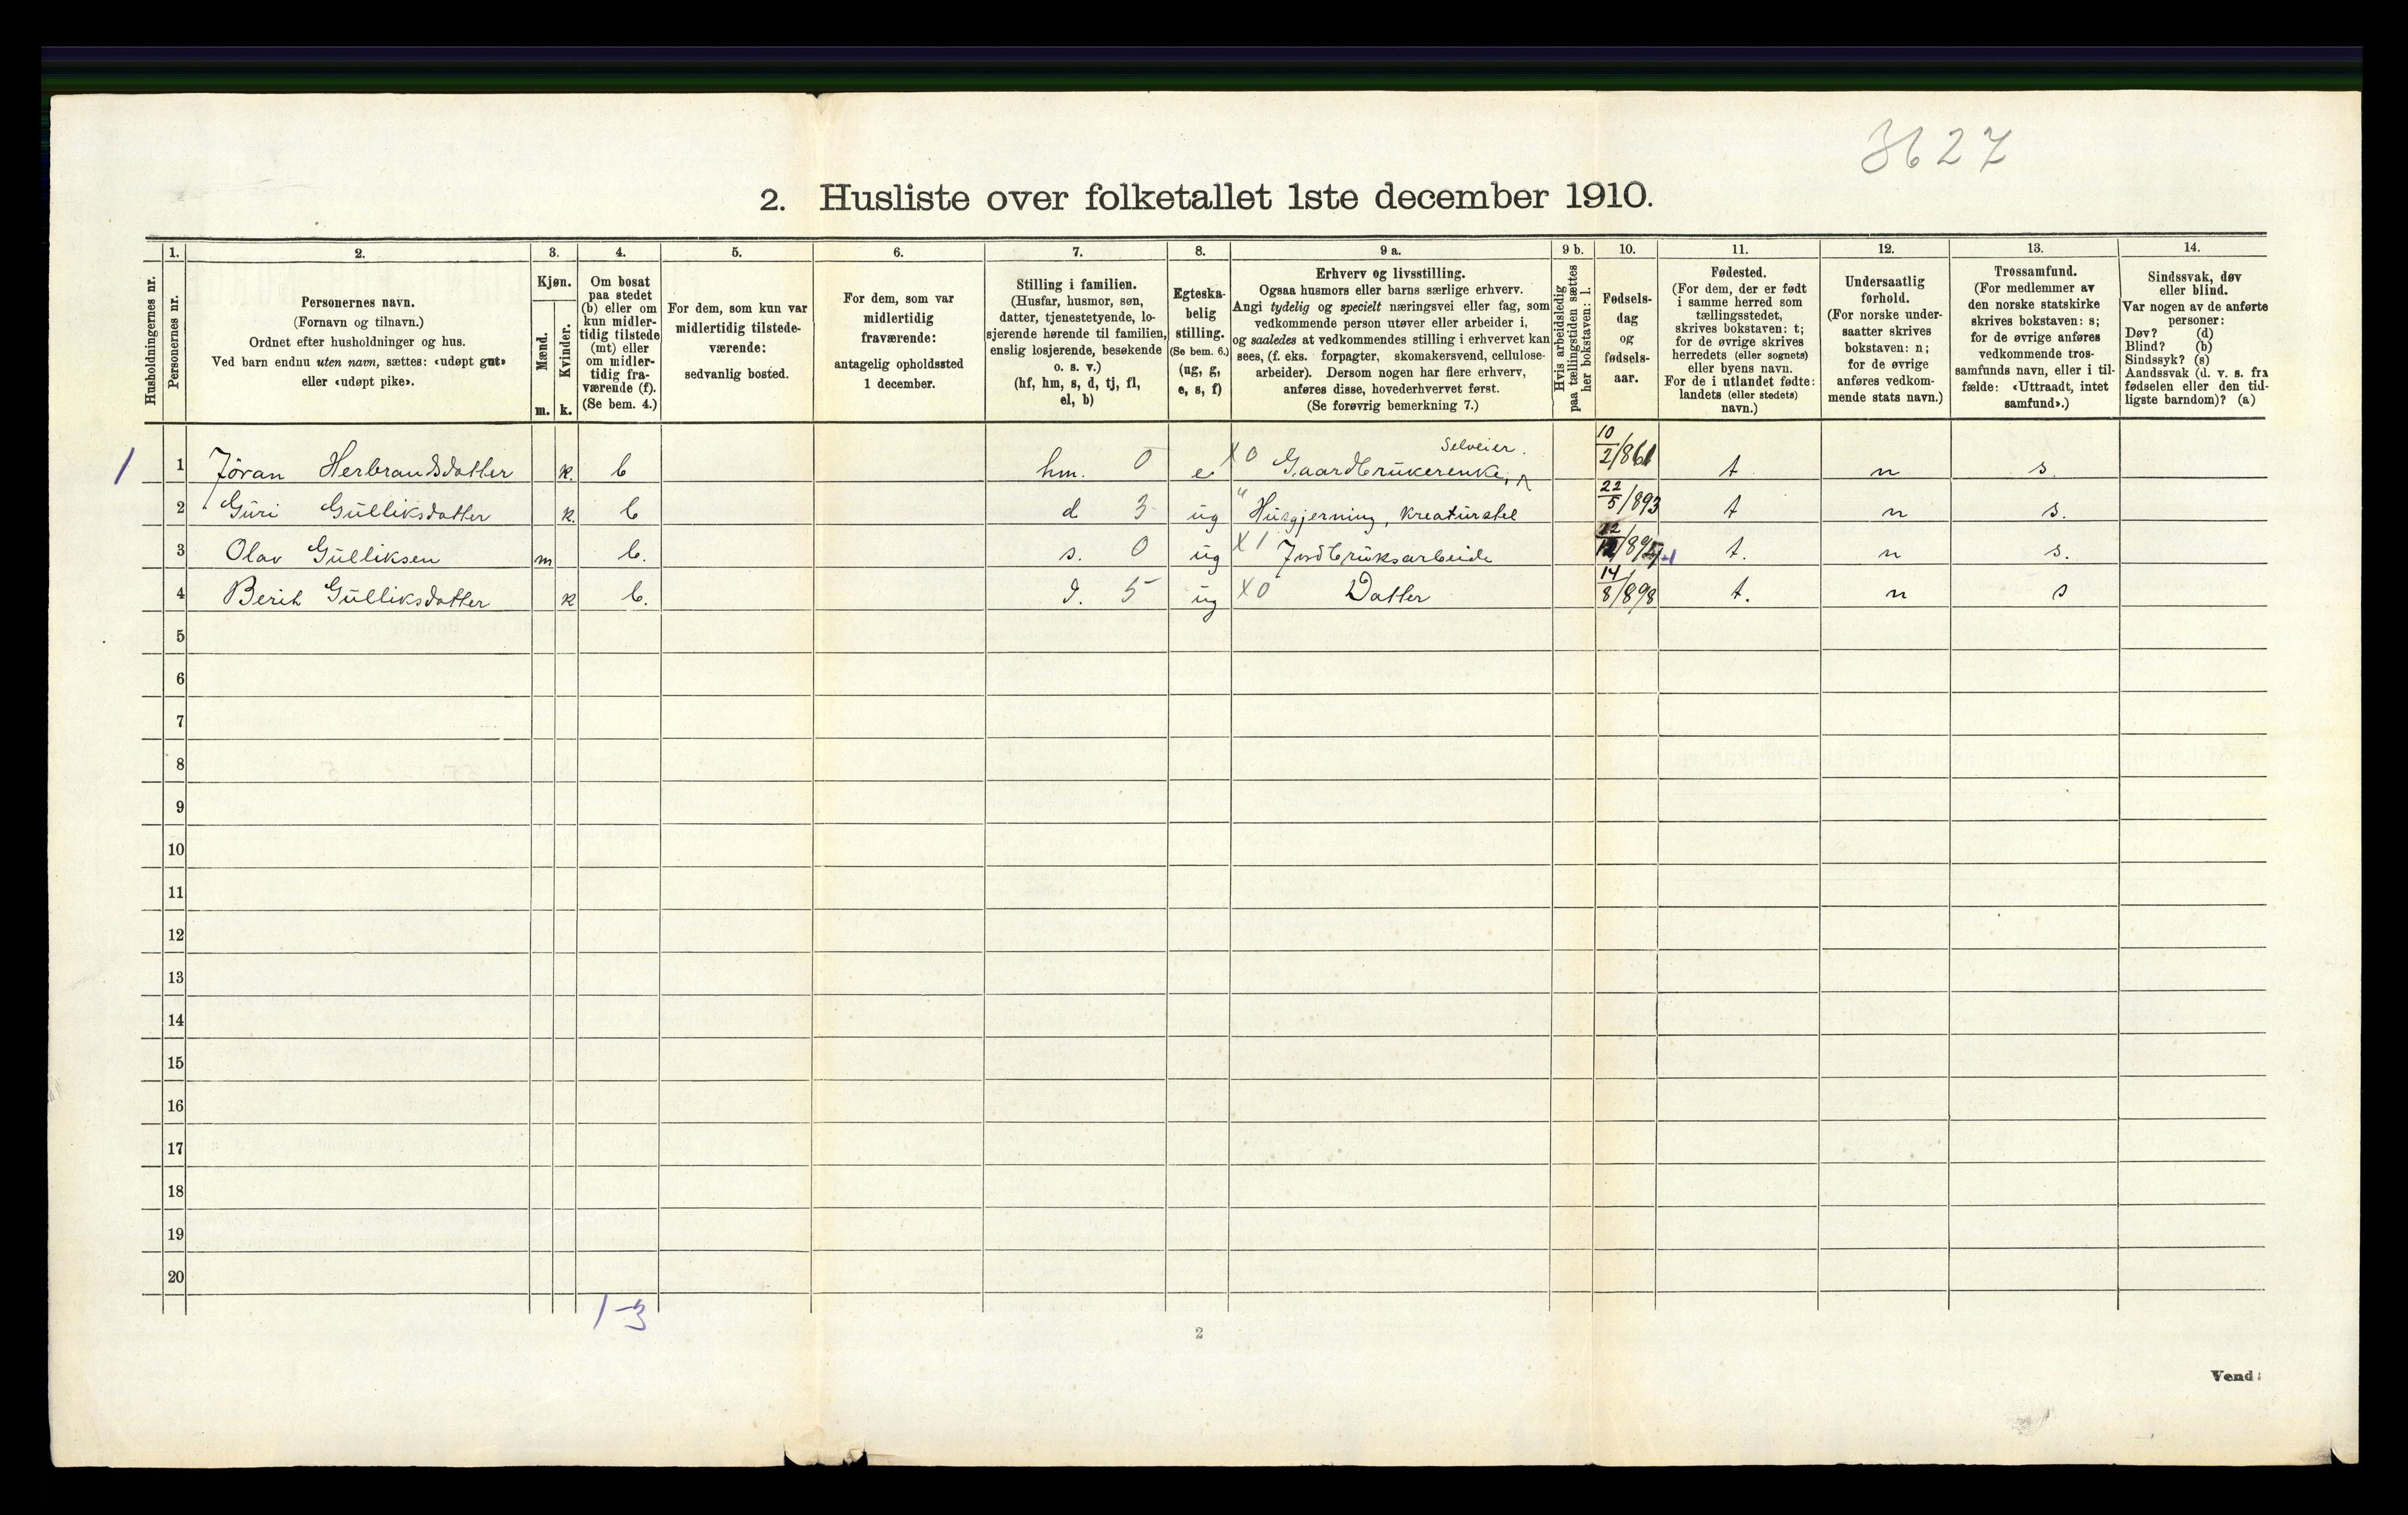 3627
2. Husliste over folketallet 1ste december 1910.
Husholdningernes nr.
1.
Personernes nr.
2.
Personernes navn.
(Fornavn og tilnavn.)
Ordnet efter husholdninger og hus.
Ved barn endnu uten navn, sættes: «udøpt gut»
eller «udøpt pike».
3.
Kjøn.
Mænd.
m.
Kvinder.
k.
4.
Om bosat
paa stedet
(b) eller om
kun midler-
tidig tilstede
(mt) eller
om midler-
tidig fra-
værende (f).
(Se bem. 4.)
5.
For dem, som kun var
midlertidig tilstede-
værende:
sedvanlig bosted.
6.
For dem, som var
midlertidig
fraværende:
antagelig opholdssted
1 december.
7.
Stilling i familien.
(Husfar, husmor, søn,
datter, tjenestetyende, lo-
sjerende hørende til familien,
enslig losjerende, besøkende
o. s. v.)
(hf, hm, s, d, tj, fl,
el, b)
8.
Egteska-
belig
stilling.
(Se bem. 6.)
(ug, g,
e, s, f)
9 a.
Erhverv og livsstilling.
Ogsaa husmors eller barns særlige erhverv.
Angi tydelig og specielt næringsvei eller fag, som
vedkommende person utøver eller arbeider i,
og saaledes at vedkommendes stilling i erhvervet kan
sees, (f. eks. forpagter, skomakersvend, cellulose-
arbeider). Dersom nogen har flere erhverv,
anføres disse, hovederhvervet først.
(Se forøvrig bemerkning 7.)
9 b.
Hvis arbeidsledig
paa tællingstiden sættes
her bokstaven: l.
10.
Fødsels-
dag
og
fødsels-
aar.
11.
Fødested.
(For dem, der er født
i samme herred som
tællingsstedet,
skrives bokstaven: t;
for de øvrige skrives
herredets (eller sognets)
eller byens navn.
For de i utlandet fødte:
landets (eller stedets)
navn.)
12.
Undersaatlig
forhold.
(For norske under-
saatter skrives
bokstaven: n;
for de øvrige
anføres vedkom-
mende stats navn.)
13.
Trossamfund.
(For medlemmer av
den norske statskirke
skrives bokstaven: s;
for de øvrige anføres
vedkommende tros-
samfunds navn, eller i til-
fælde: «Uttraadt, intet
samfund».)
14.
Sindssvak, døv
eller blind.
Var nogen av de anførte
personer:
Døv? (d)
Blind? (b)
Sindssyk? (s)
Aandssvak (d. v. s. fra
fødselen eller den tid-
ligste barndom)? (a)
Selveier.
1 1 Jøran Herbrandsdatter k. b hm. 0 e X0 Gaardbrukerenke, 10/2/861 t n s.
2 Guri Gulliksdatter k. b d 3 ug " Husgjerning, kreaturstel 22/5/893 t n s.
3 Olav Gulliksen m b. s. 0 ug X1 Jordbruksarbeide t. n s.
4 Berit Gulliksdatter k b. d. 5 ug X0 Datter 14/8/898 t. n s
5
6
7
8
9
10
11
12
13
14
15
16
17
18
19
20
1-3
2
Vend